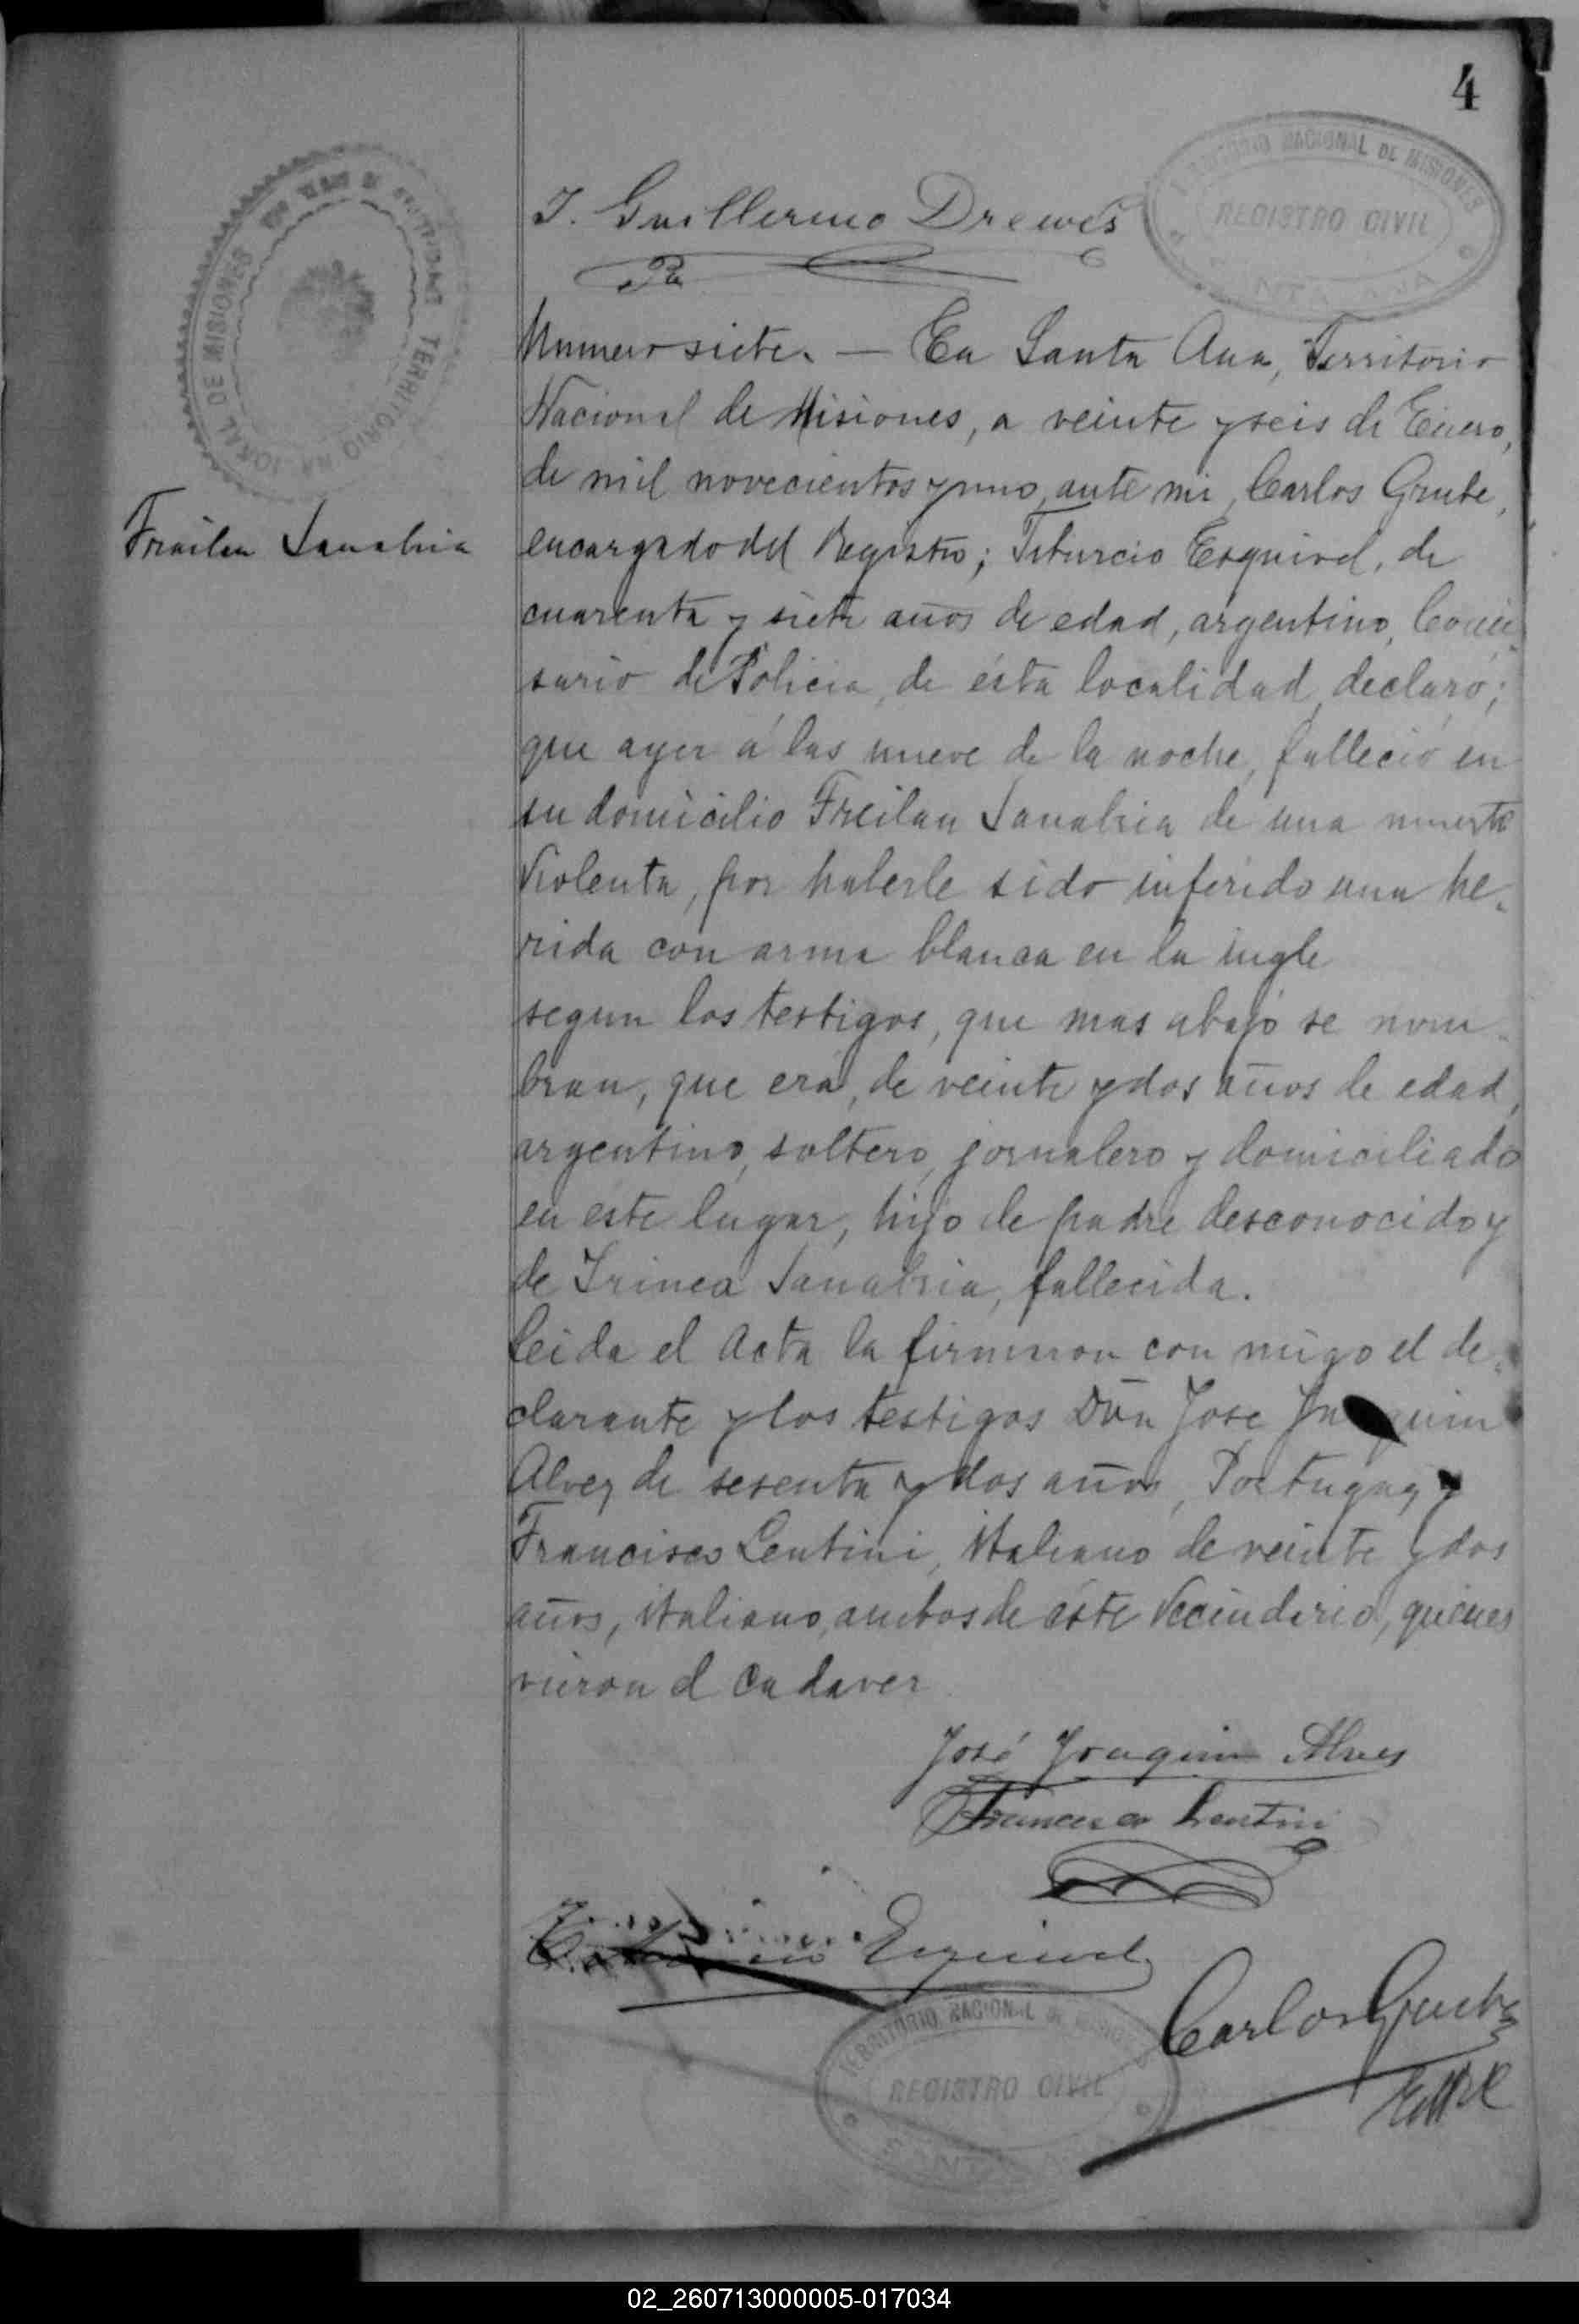 4
TERRITORIO NACIONAL DE MISIONES
REGISTRO CIVIL
SANTA ANA
J. Guillermo Drewes
Numero siete. — En Santa Ana, Territorio
Nacional de Misiones, a veinte y seis de Enero,
de mil novecientos y uno, ante mi, Carlos Grube,
Frailan Sanabria
encargado del Registro; Tiburcio Esquivel, de
cuarenta y siete años de edad, argentino, Comi-
sario de Policia, de ésta localidad, declaró;
que ayer á las nueve de la noche, falleció en
su domicilio Freilan Sanabria de una muerte
violenta, por haberle sido inferido una he-
rida con arma blanca en la ingle
segun los testigos, que mas abajo se nom-
bran, que era, de veinte y dos años de edad,
argentino, soltero, jornalero y domiciliado
en este lugar, hijo de padre desconocido y
de Irinea Sanabria, fallecida.
Leida el Acta la firmaron con migo el de-
clarante y los testigos Don Jose Joaquim
Alvez de sesenta y dos años, Portugues y
Francisco Lentini, italiano de veinte y dos
años, italiano, ambos de éste Vecindario, quienes
vieron el cadaver
José Joaquim Alves
Francesco Lentini
Tiburcio Esquivel
Carlos Grube
TERRITORIO NACIONAL DE MISIONES
REGISTRO CIVIL
SANTA ANA
02_260713000005-017034